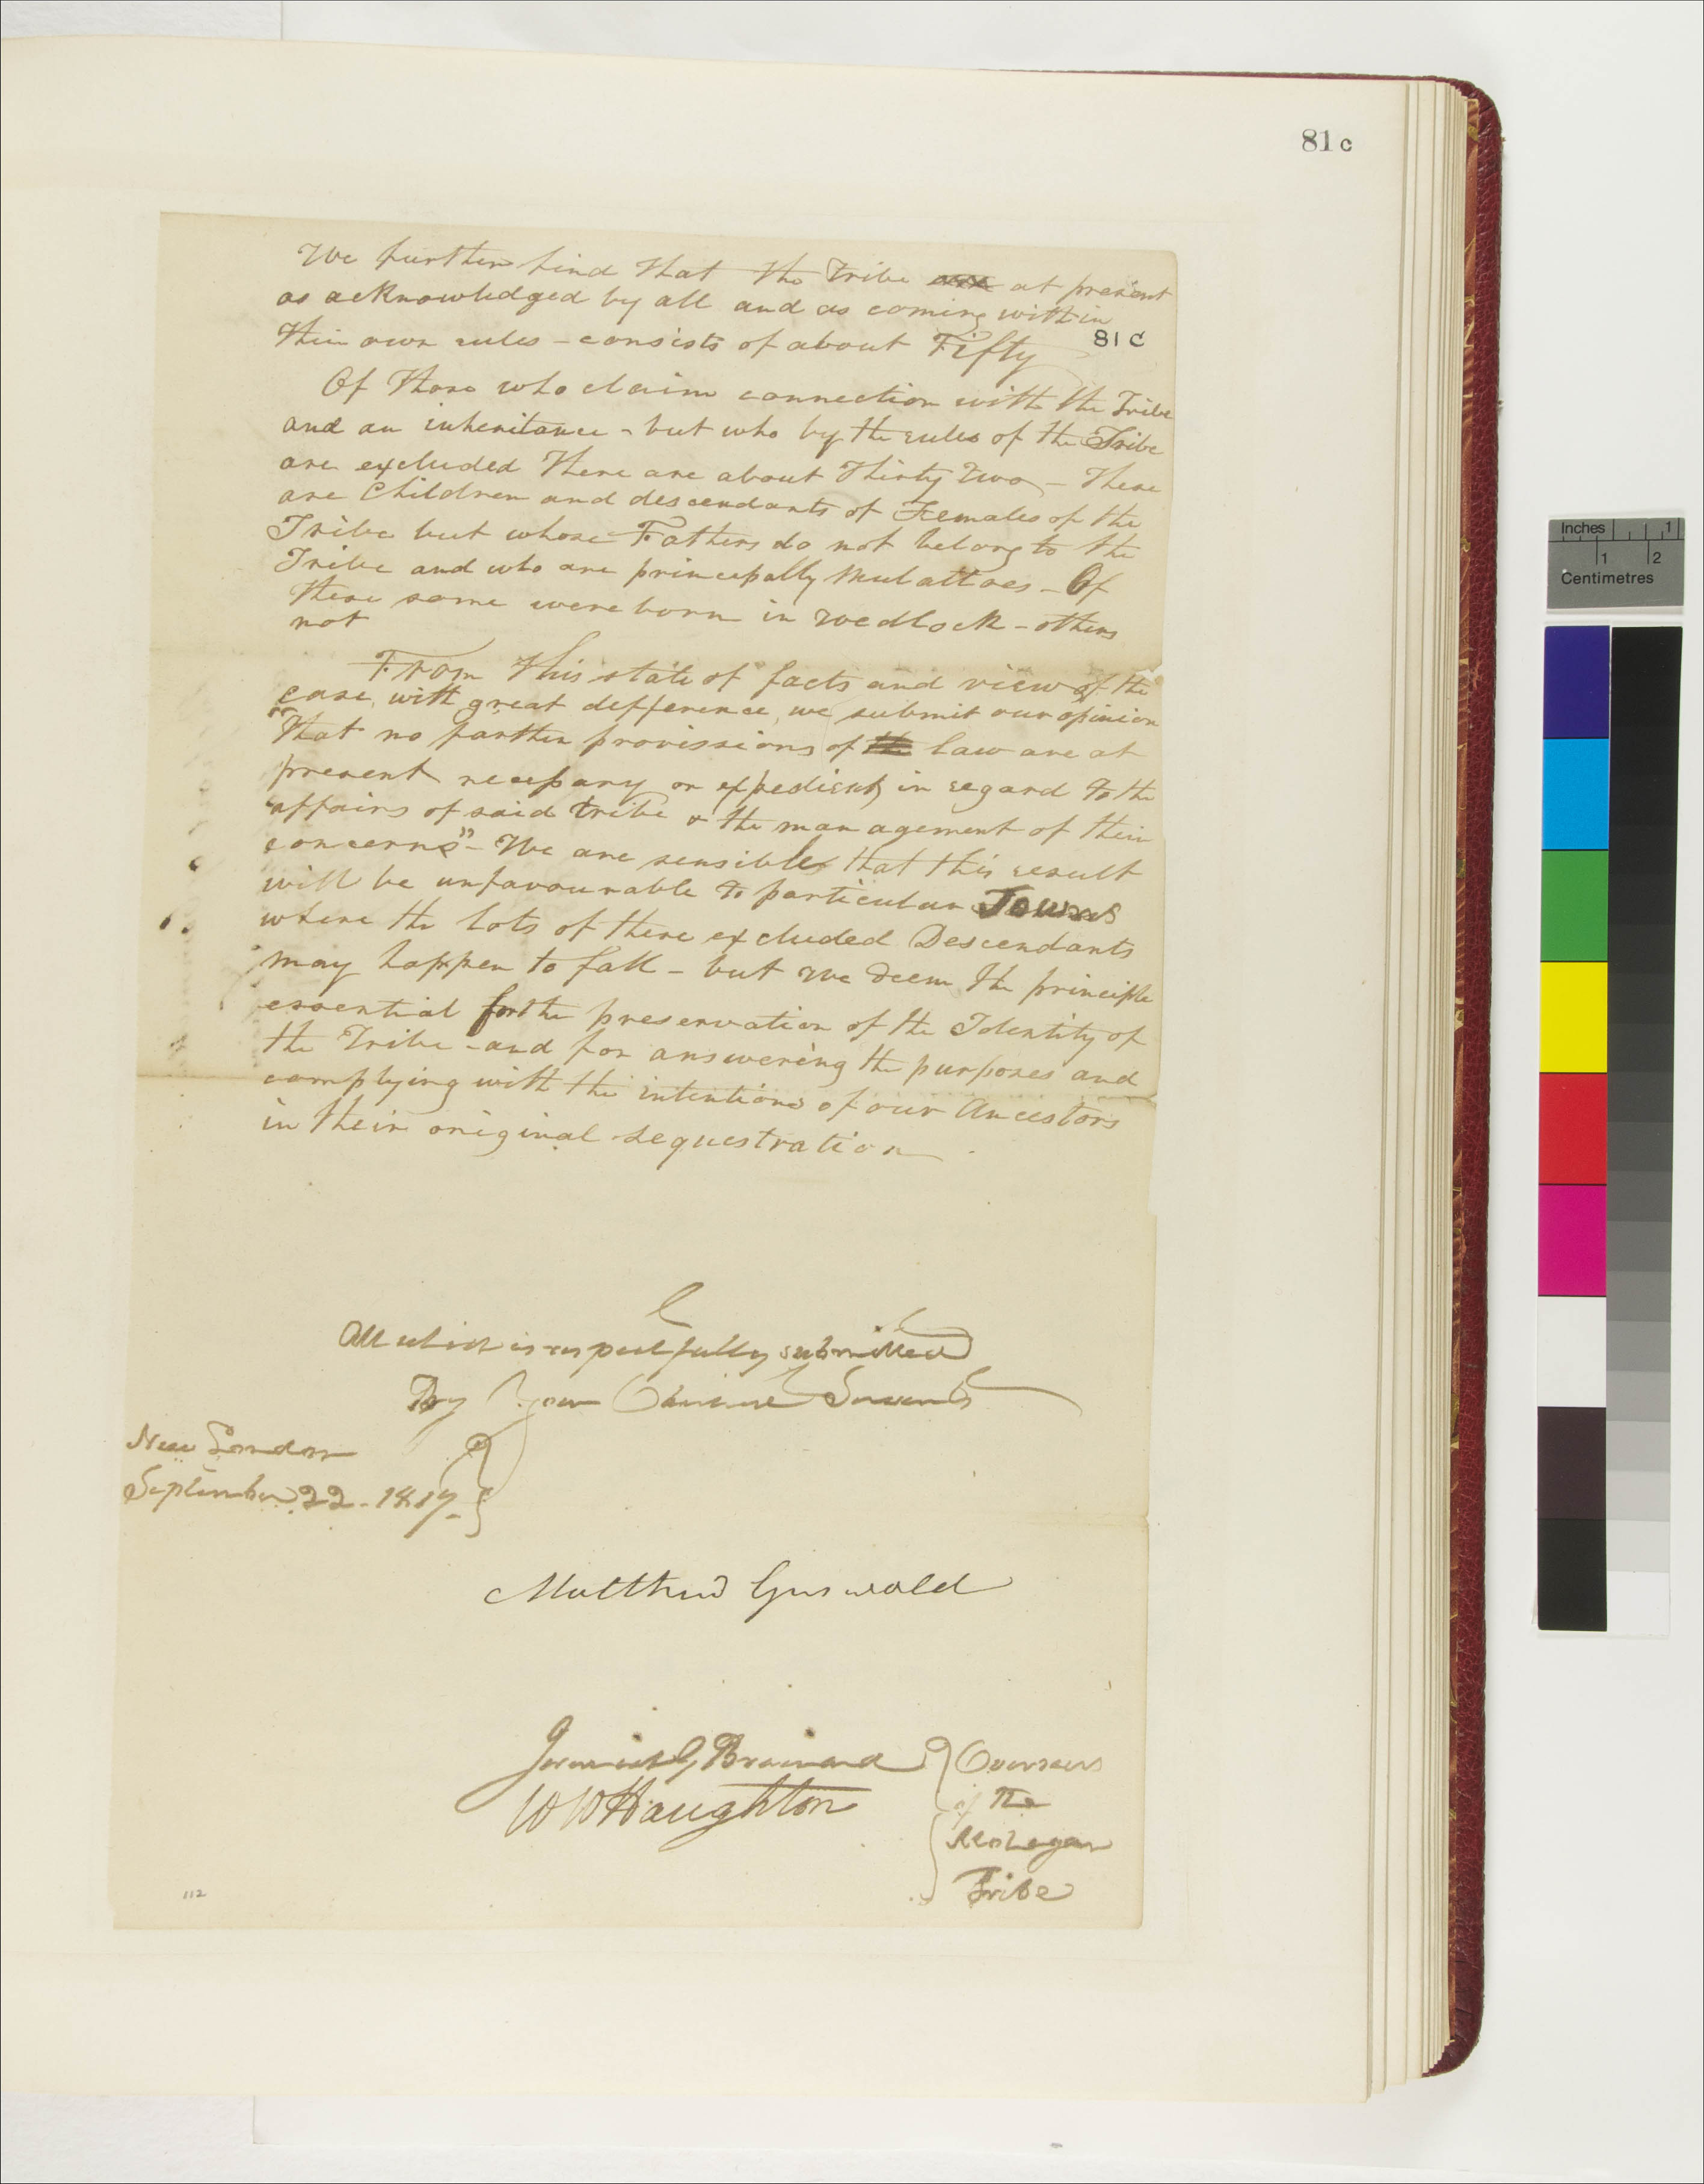 81 c
We further find that the Tribe at present
as acknowledged by all and as coming within
their own rules - consists of about Fifty
81 C
Of those who claim connection with the Tribe
and an inheritance - but who by the rules of the Tribe
are excluded there are about Thirty Two - These
are Children and descendants of Females of the
Tribe but whose Fathers do not belong to the
Tribe and who are principally Mulattoes - Of
these some were born in wedlock - others
not
From this state of facts and view of the
case, with great defference, we submit our opinion
"That no farther provissions of law are at
present necessary or expedient, in regard to the
affairs of said tribe & the management of their
concerns" - We are sensible that this result
will be unfavourable to particular Towns
where the lots of these excluded Descendants
may happen to fall - but we deem the principle
essential for the preservation of the Identity of
the Tribe - and for answering the purposes and
complying with the intentions of our Ancestors
in their original sequestration
All which is respectfully submitted
By Your Servants
New London
September 22 - 1817 -
Matthew Griswold
Jeremiah G Brainard
W W Haughton
Overseers
of the
Mohegan
Tribe
112
Inches 1
1 2
Centimetres